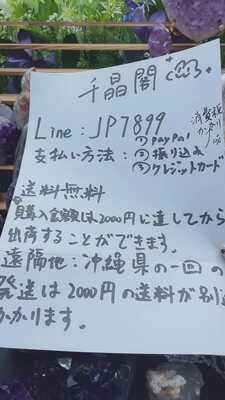 千晶閣
Line: JP7899
① PayPal
支払い方法: ② 振り込み
③ クレジットカード
消費税
かかり
送料無料
購入金額は2000円に達してから
出荷することができます。
遠隔地:沖縄県の一回の
発送は2000円の送料が別途
かかります。